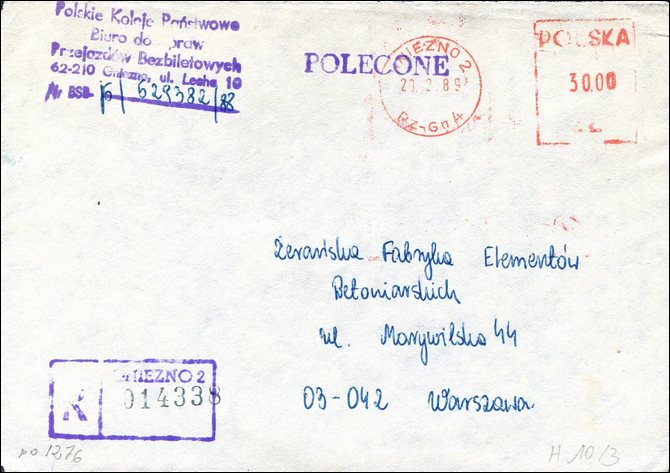 Polskie Koleje Państwowe
Biuro do spraw
Przejazdów Bezbiletowych
62-210 Gniezno, ul. Lecha 10
Nr BSB- 6/629382/88
POLECONE
GNIEZNO 2
89
RZ-Gn A
POLSKA
30.00
Żerańska Fabryka Elementów
Betoniarskich
ul. Marywilska 44
03-042 Warszawa.
R
GNIEZNO 2
014338
PO 1276
H 10/3